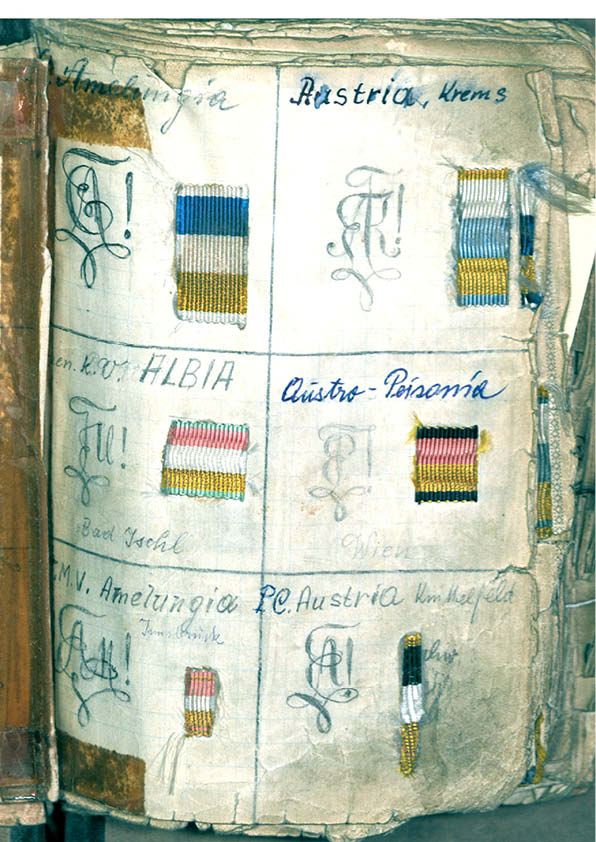 Amelungia
Austria, Krems
en. k.V. ALBIA
Bad Ischl
Austro-Peisonia
Wien
M.V. Amelungia
Innsbruck
P.C. Austria